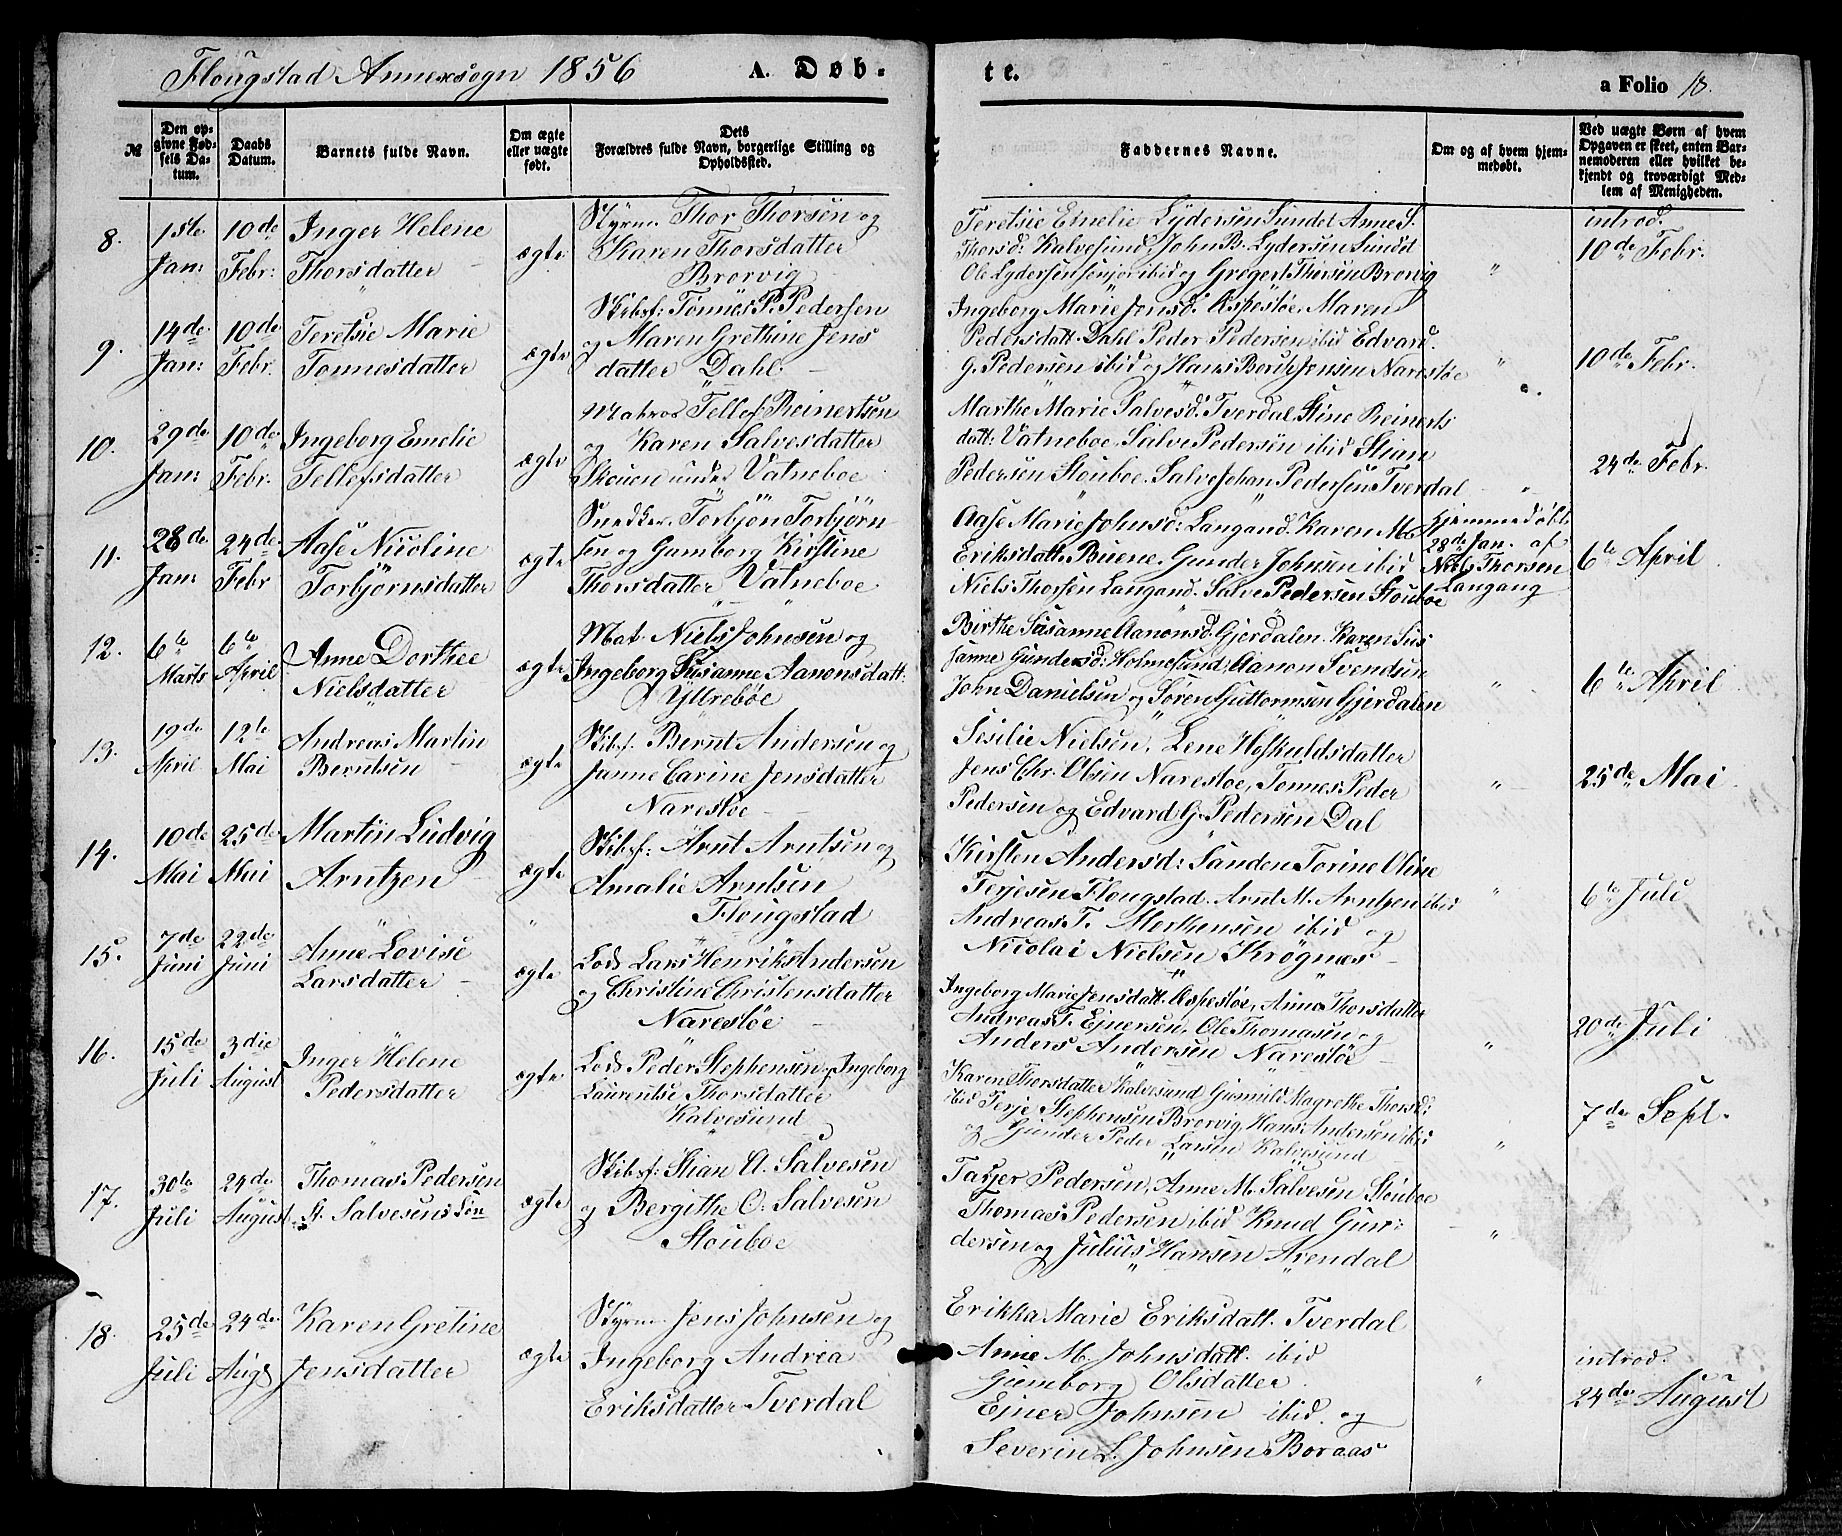 Flougstad Annexsogn 1856 A. Døb- te. a Folio 18.
№
Den opgivne Fødsels Datum.
Daabs Datum.
Barnets fulde Navn.
Om ægte eller uægte født.
Dets Forældres fulde Navn, borgerlige Stilling og Opholdssted.
Faddernes Navne.
Om og af hvem hjemmedøbt.
Ved uægte Børn af hvem Opgaven er skeet, enten Barnemoderen eller hvilket bekjendt og troværdigt Medlem af Menigheden.
8.
1ste Jan:
10de Febr:
Inger Helene
Thorsdatter
ægte
Styrm. Thor Thorsen og
Karen Thorsdatter
Brørvig
Teretsie Emelie Lydersen Sundet Anne S.
Thorsd: Kalvesund, John B. Lydersen Sundet
Ole Lydersen senjor ibid og Gregert Thorsen Brørvig
"
introd.
10de Febr.
9.
14de Jan:
10de Febr.
Teretsie Marie
Tønnesdatter
ægte
Skibsf: Tønnes P. Pedersen
og Maren Grethine Jens
datter Dahl
Ingeborg Marie Jensd. Espestøe. Maren
Pedersdatt. Dahl Peder Pedersen ibid Edvard.
G. Pedersen ibid og Hans Bordt Jensen Narestøe
"
10de Febr.
10.
29de Jan:
10de Febr.
Ingeborg Emelie
Tellefsdatter
ægte
Matros Tellef Reinertsen
og Karen Salvesdatter
Skouen under Vatneboe
Marthe Marie Salvesd. Tverdal, Stine Reinerts
datt: Vatneboe. Salve Pedersen ibid Stian
Pedersen Stouboe. Salve Johan Pedersen Tverdal
"
24de Febr.
11.
28de Jan:
24de Febr
Aase Nicoline
Torbjørnsdatter
ægte
Snedker Torbjøn Torbjørn-
sen og Gumborg Kirstine
Thorsdatter Vatneboe
Aase Marie Johnsd: Langand. Karen M.
Eriksdatt. Buene. Gunder Johnsen ibid
Niels Thorsen Langand. Salve Pedersen Stouboe
Hjemmedøbt
28de Jan. af
Niels Thorsen
Langang
6te April
12.
6te Marts
6te April
Anne Dorthee
Nielsdatter
ægte
Mat. Niels Johnsen og
Ingeborg Susanne Aanonsdatt.
Yttrebøe
Birthe Susanne Aanonsd. Gjerdalen. Karen Sus
sanne Gundersd: Holmesund, Aanon Svendsen
John Danielsen og Søren Guttormsen Gjerdalen
"
6te April
13.
19de April
12te Mai
Andreas Martin
Berntsen
ægte
Skibsf. Bernt Andersen og
Janne Carine Jensdatter
Narestøe
Sesilie Nielsen, Lene Hofkuldsdatter
Jens Chr. Olsen Narestoe, Tonnes Peder
Pedersen og Edvard G. Pedersen Dal
"
25de Mai
14.
10de Mai
25de Mai
Martin Ludvig
Arntzen
ægte
Skibsf: Arnt Arntsen og
Amalie Arntsen
Flougstad
Kirsten Andersd: Sanden Torine Oline
Terjesen Flougstad. Arnt M. Arntzen ibid
Andreas T. Morkensen ibid og
Nicolai Nielsen Krøgnæs
"
6te Juli
15.
7de Juni
22de Juni
Anne Lovise
Larsdatter
ægte
Lods Lars Henrik Andersen
og Christine Christensdatter
Narestøe
Ingeborg Marie Jensdatt. Espestøe, Anne Thorsdatter
Andreas T. Ejnersen. Ole Thomasen og
Anders Andersen Narestøe
"
20de Juli
16.
15de Juli
3die August
Inger Helene
Pedersdatter
ægte
Lods Peder Stephensen og Ingeborg
Laurentse Thorsdatter
Kalvesund
Karen Thorsdatter Kalvesund Gunnild Magrethe Thorsd:
ibid Terje Stephensen Brørvig, Hans Andersen ibid
og Gunder Peder Larsen Kalvesund
"
7de Sept.
17.
30te Juli
24de August
Thomas Pedersen
St. Salvesens Søn
ægte
Skibsf: Stian A. Salvesen
og Bergithe O. Salvesen
Stouboe
Tarjer Pedersen, Anne M. Salvesen Stouboe
Thomas Pedersen ibid Knud Gun-
dersen og Julius Hansen Arendal
"
18.
25de Juli
24de Aug:
Karen Gretine
Jensdatter
ægte
Styrm. Jens Johnsen og
Ingeborg Andrea
Eriksdatter Tverdal
Erikka Marie Eriksdatt. Tverdal
Anne M. Johnsdatt. ibid
Gumborg Olsdatter.
Ejner Johnsen ibid. og
Severin L. Johnsen Boraas
"
introd.
24de August